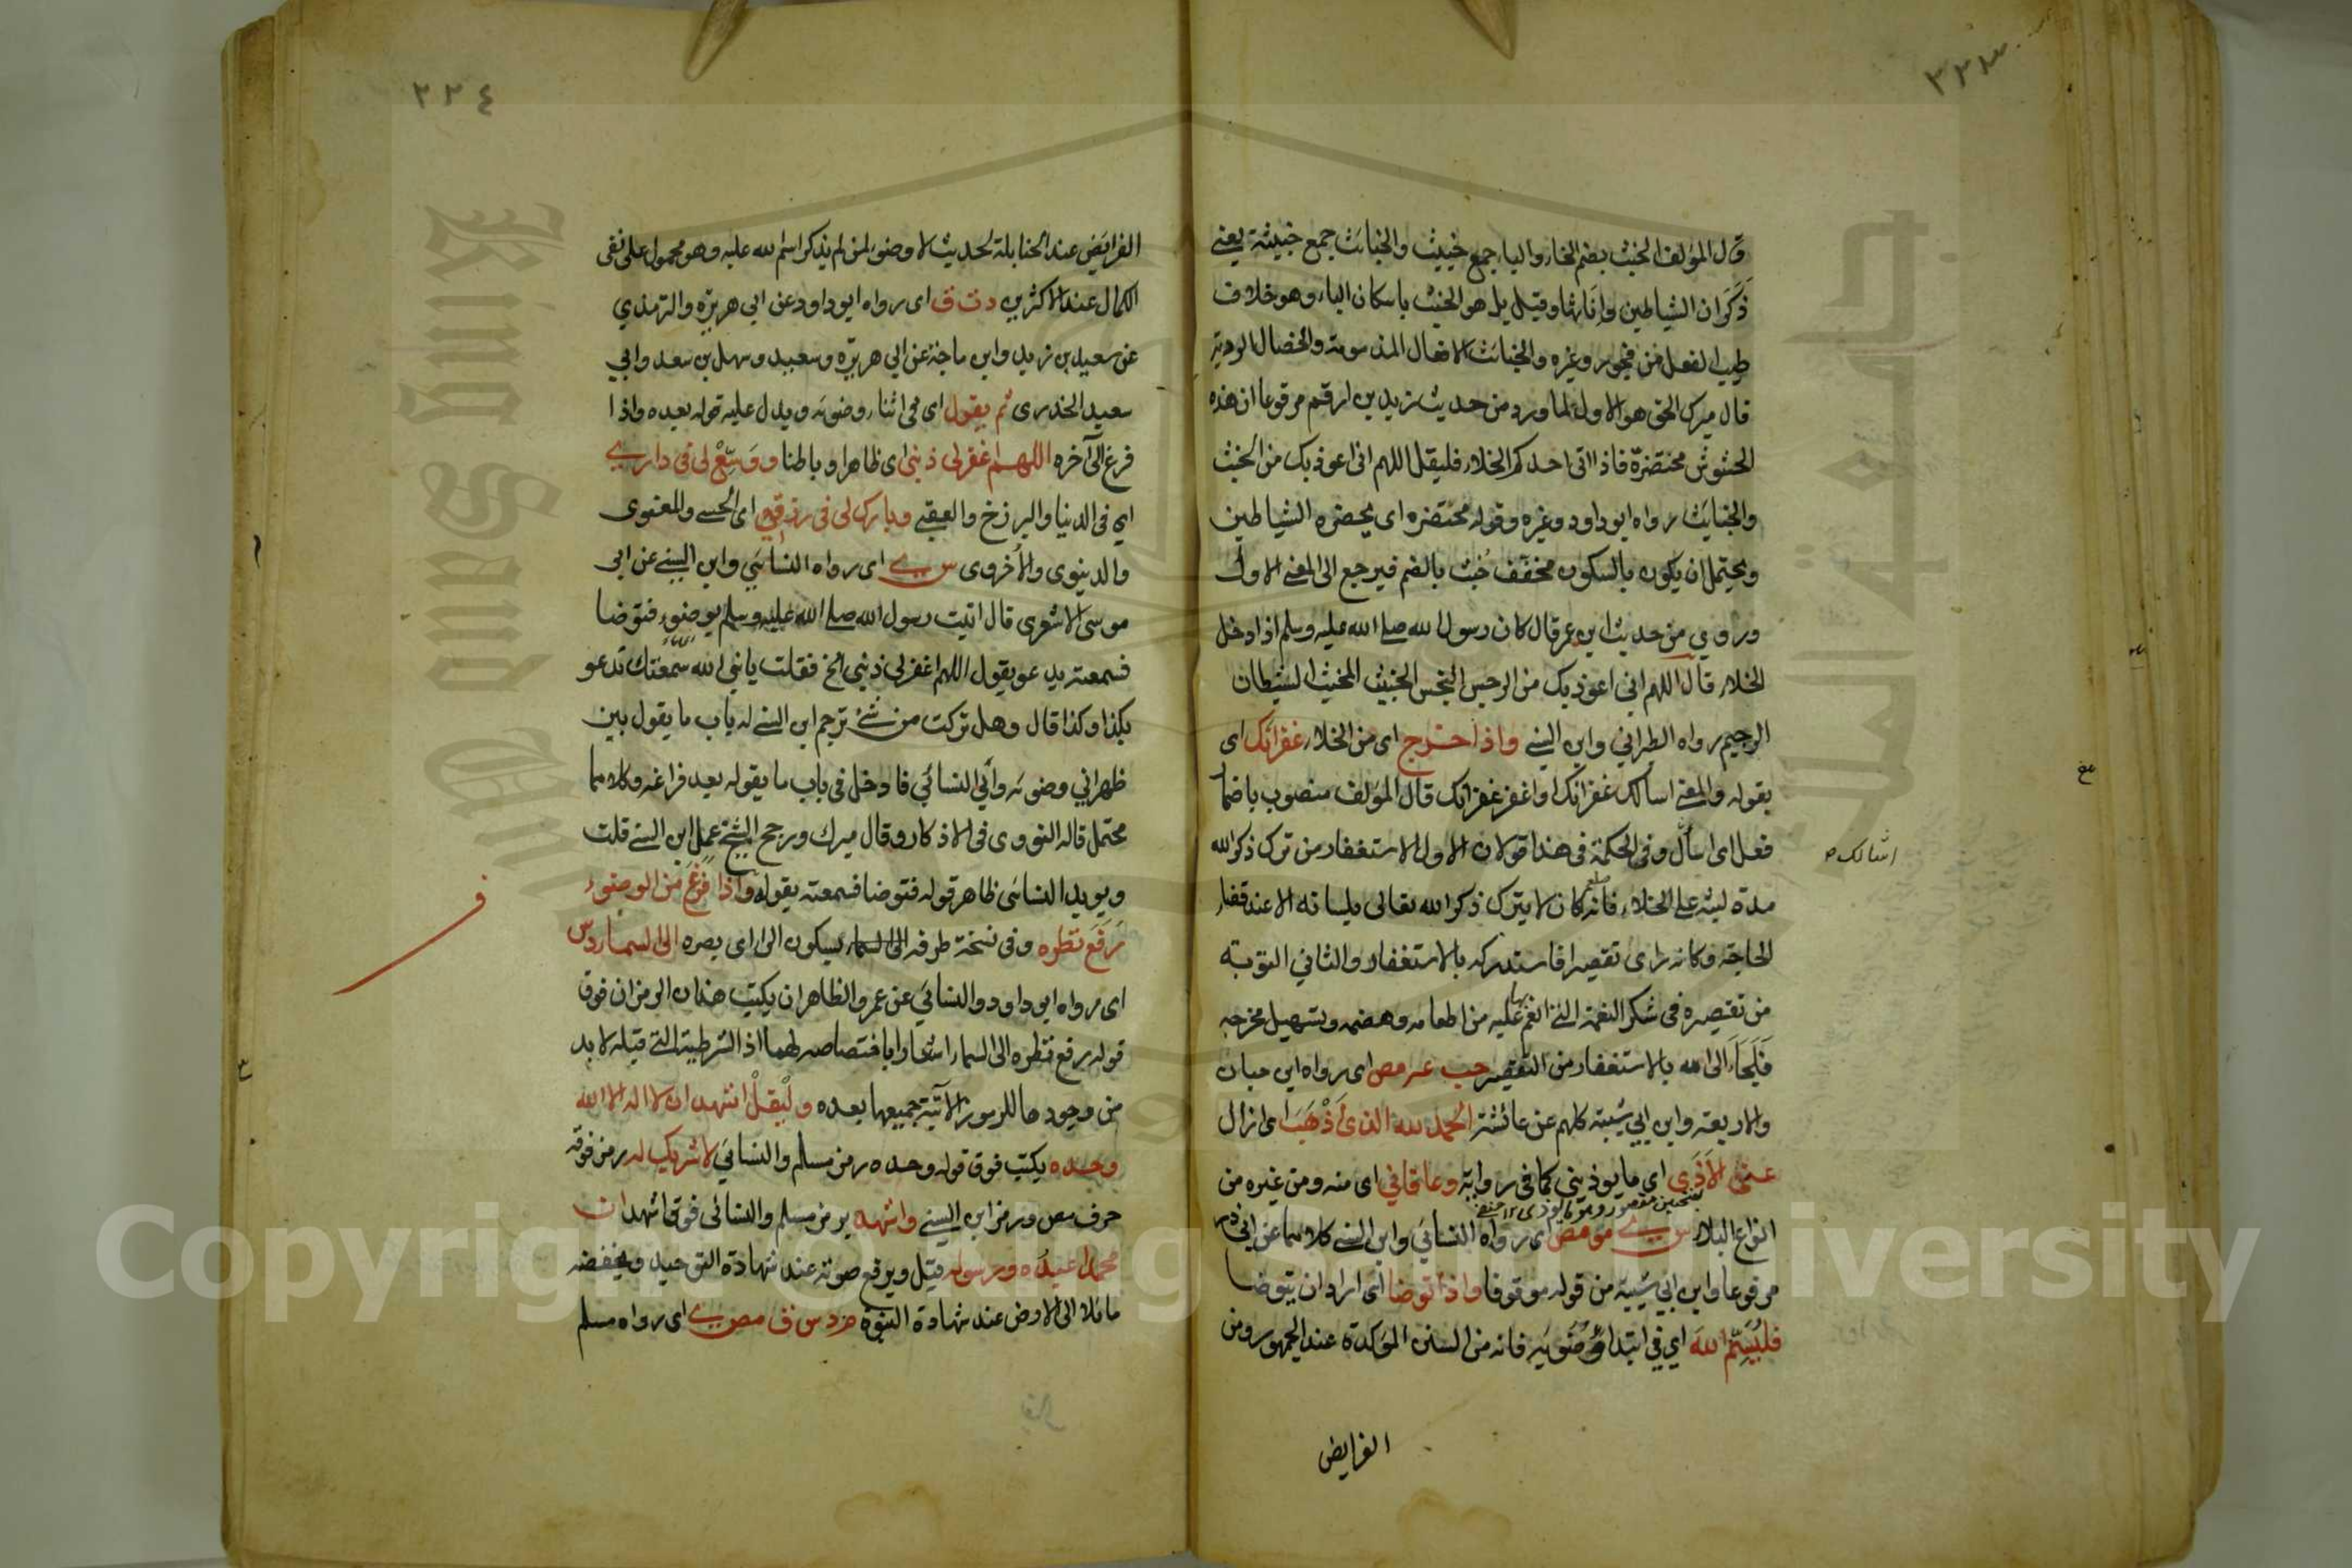 ٣٣٣
قال المؤلف الخبث بضم الخاء والباء جمع خبيث والخبائث جمع خبيثة يعني
ذكران الشياطين وإناثها وقيل بل هو الخبث باسكان الباء وهو خلاف
طيب الفعل من فجور وغيره والخبائث الافعال المذمومة والخصال الردية
قال ميرك الحق هو الاول لما ورد من حديث زيد بن ارقم مرفوعا ان هذه
الحشوش محتضرة فاذا اتى احدكم الخلاء فليقل اللهم انى اعوذ بك من الخبث
والخبايث رواه ابو داود وغيره وقوله محتضره اى يحضره الشياطين
ويحتمل ان يكون بالسكون مخفف خُبث بالضم فيرجع الى المعنى الاول
وروي من حديث ابن عمر قال كان رسول الله صلى الله عليه وسلم اذا دخل
الخلاء قال اللهم اني اعوذ بك من الرجس النجس الخبيث المخبث الشيطان
الرجيم رواه الطبراني وابن السنى واذا خرج اى من الخلاء غفرانك اى
يقوله والمعنى اسألك غفرانك او اغفر غفرانك قال المؤلف منصوب باضمار
فعل اى اسأل وفى الحكمة فى هذا قولان الاول الاستغفار من ترك ذكر الله
اسالك
مدة لبثه على الخلاء فانه كان لا يترك ذكر الله تعالى بلسانه الا عند قضاء
الحاجة وكانه رأى تقصيرا فاستدركه بالاستغفار والثاني التوبة
من تقصيره فى شكر النعمة التى انعم بها عليه من اطعامه وهضمه وتسهيل مخرجه
فلجأ الى الله بالاستغفار من التقصير حب عه مص اى رواه ابن حبان
والاربعة وابن ابي شيبة كلهم عن عائشة الحمد لله الذى أذهب اى ازال
عنى الأذى اى ما يوذيني كما فى رواية وعافاني اى منه ومن غيره من
انواع البلاء س ى مو مص اى رواه النسائي وابن السنى كلاهما عن ابى ذر
مرفوعا وابن ابي شيبة من قوله موقوفا واذا توضا اى اراد ان يتوضا
فليُسَمِّ الله اي في ابتداء وُضُوئِه فانه من السنن المؤكدة عند الجمهور ومن
الفرايض
٣٣٤
الفرايض عند الحنابلة لحديث لا وضوء لمن لم يذكر اسم الله عليه وهو محمول على نفى
الكمال عند الاكثرين د ت ق اى رواه ابو داود عن ابي هريرة والترمذي
عن سعيد بن زيد وابن ماجة عن ابي هريرة وسعيد وسهل بن سعد وابي
سعيد الخدرى ثم يقول اى فى اثناء وضوئه ويدل عليه قوله بعده واذا
فرغ الى آخره اللهم اغفر لى ذنبى اى ظاهرا وباطنا ووَسِّعْ لى فى دارى
اي فى الدنيا والبرزخ والعقبى وبارك لى فى رزقى اى الحسى والمعنوى
والدينوى والأخروى س ى اى رواه النسائي وابن السنى عن ابى
موسى الاشعرى قال اتيت رسول الله صلى الله عليه وسلم بوضوء فتوضا
فسمعته يدعو يقول اللهم اغفر لى ذنبى الخ فقلت يا نبى الله سمعتك تدعو
بكذا وكذا قال وهل تركت من شئ ترجم ابن السنى له باب ما يقول بين
ظهراني وضوئه وأبي النسائي فادخل فى باب ما يقوله بعد فراغه وكلاهما
محتمل قاله النووى فى الاذكار وقال ميرك ورجح الشيخ عمل ابن السنى قلت
ويويد النسائى ظاهر قوله فتوضا فسمعته يقول واذا فرغ من الوضوء
رفع نظره وفى نسخة طرفه الى السماء بسكون الراء اى بصره الى السماء د س
اى رواه ابو داود والنسائي عن عمر والظاهر ان يكتب هذان الرمزان فوق
قوله رفع نظره الى السماء اشعارا باختصاصه لهما اذ الشرطية التى قبله لا بد
من وجودها للرموز الآتية جميعها بعده وليقل اشهد ان لا اله الا الله
وحده يكتب فوق قوله وحده رمز مسلم والنسائي لا شريك له رمز فوقه
حرف مص ورمز ابن السنى واشهد برمز مسلم والنسائى فوق اشهد ان
محمدا عبده ورسوله قيل ويرفع صوته عند شهادة التوحيد ويخفضه
مائلا الى الارض عند شهادة النبوة م د س ق مص ى اى رواه مسلم
Copyright © King Saud University
King Saud University
جامعة الملك سعود